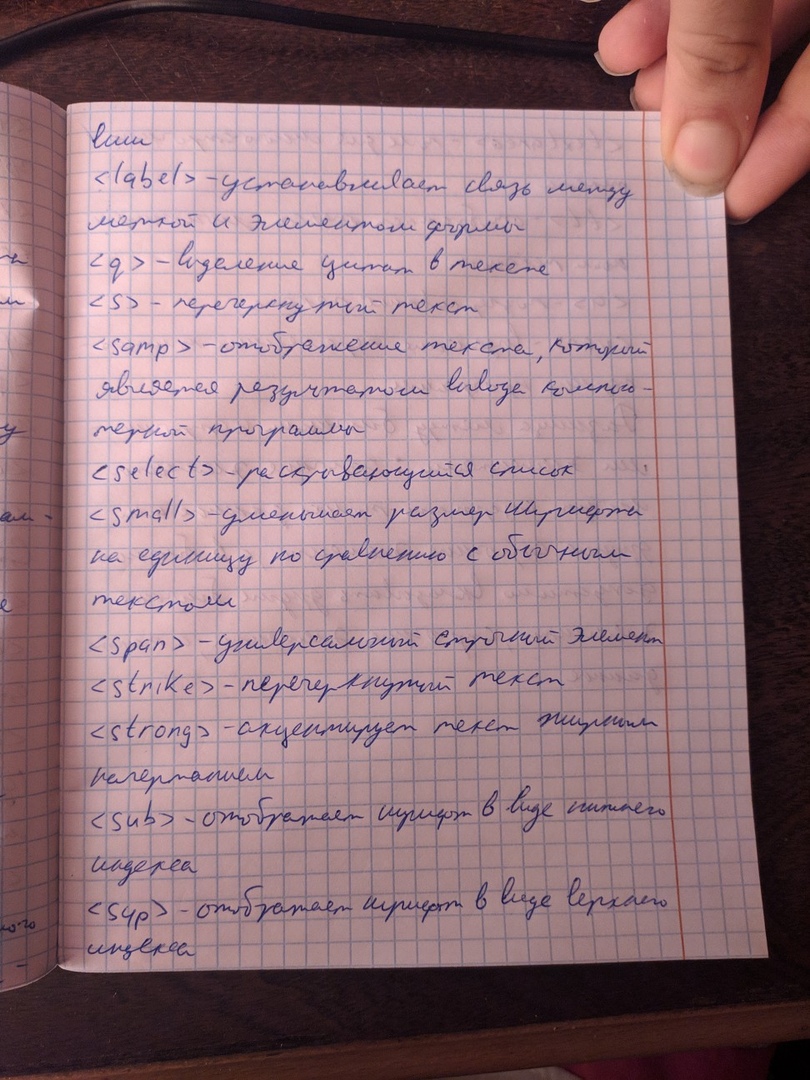 вши
<label> - устанавливает связь между
меткой и элементом формы
<q> - выделение цитат в тексте
<s> - перечеркнутый текст
<samp> - отображение текста, который
является результатом вывода компью-
терной программы
<select> - раскрывающийся список
<small> - уменьшает размер шрифта
на единицу по сравнению с обычным
текстом
<span> - универсальный строчный элемент
<strike> - перечеркнутый текст
<strong> - акцентирует текст жирным
начертанием
<sub> - отображает шрифт в виде нижнего
индекса
<syp> - отображает шрифт в виде верхнего
индекса